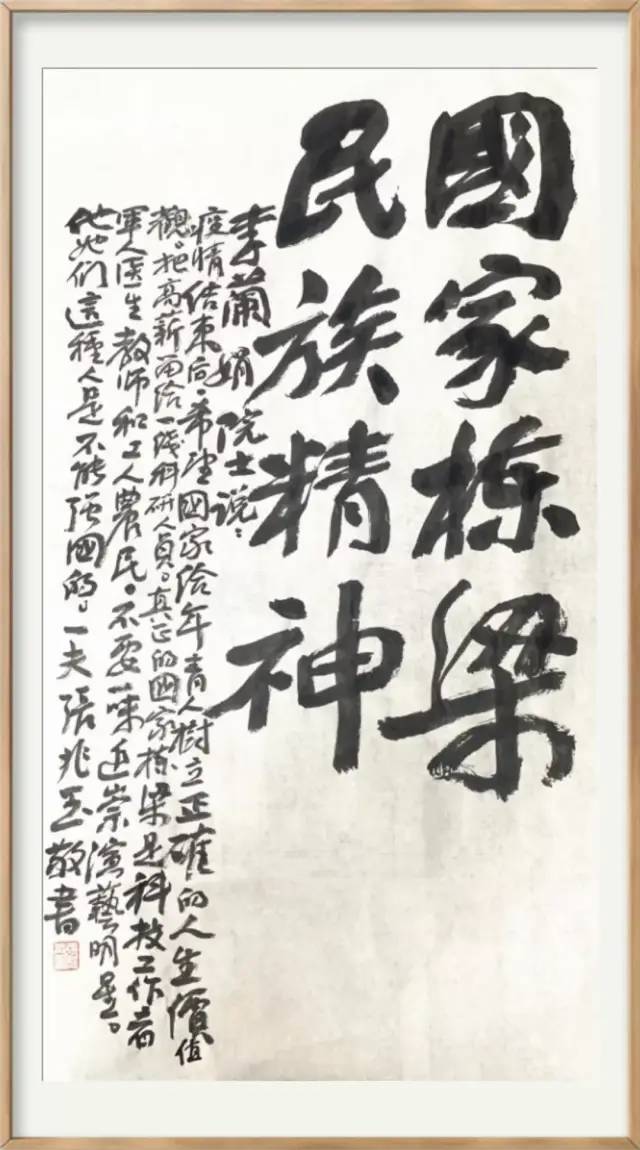 國家栋梁
民族精神
李蘭娟院士说：
疫情结束向，希望國家给年青人树立正確的人生價值
觀。把高薪留给一线科研人員。真正的囯家栋梁是科技工作者
軍人医生教师和工人農民。不要一味追崇演藝明星。
他她们這種人是不能强國的。一夫张兆玉敬書